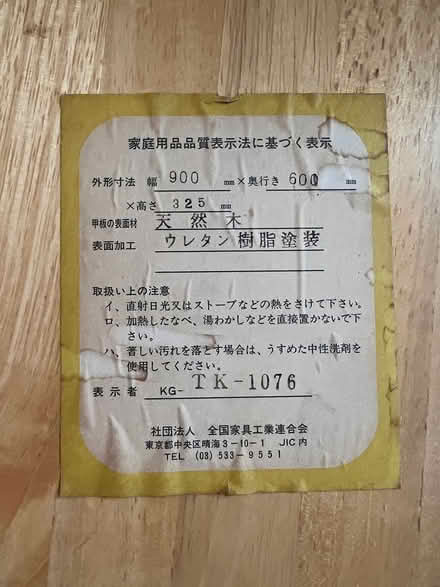 家庭用品品質表示法に基づく表示
外形寸法 幅 900 mm×奥行き 600 mm
×高さ 325 mm
甲板の表面材 天然木
表面加工 ウレタン樹脂塗装
取扱い上の注意
イ、直射日光又はストーブなどの熱をさけて下さい。
ロ、加熱したなべ、湯わかしなどを直接置かないで下
さい。
ハ、著しい汚れを落とす場合は、うすめた中性洗剤を
使用してください。
表示者 KG-TK-1076
社団法人 全国家具工業連合会
東京都中央区晴海3-10-1 JIC内
TEL (03)533-9551